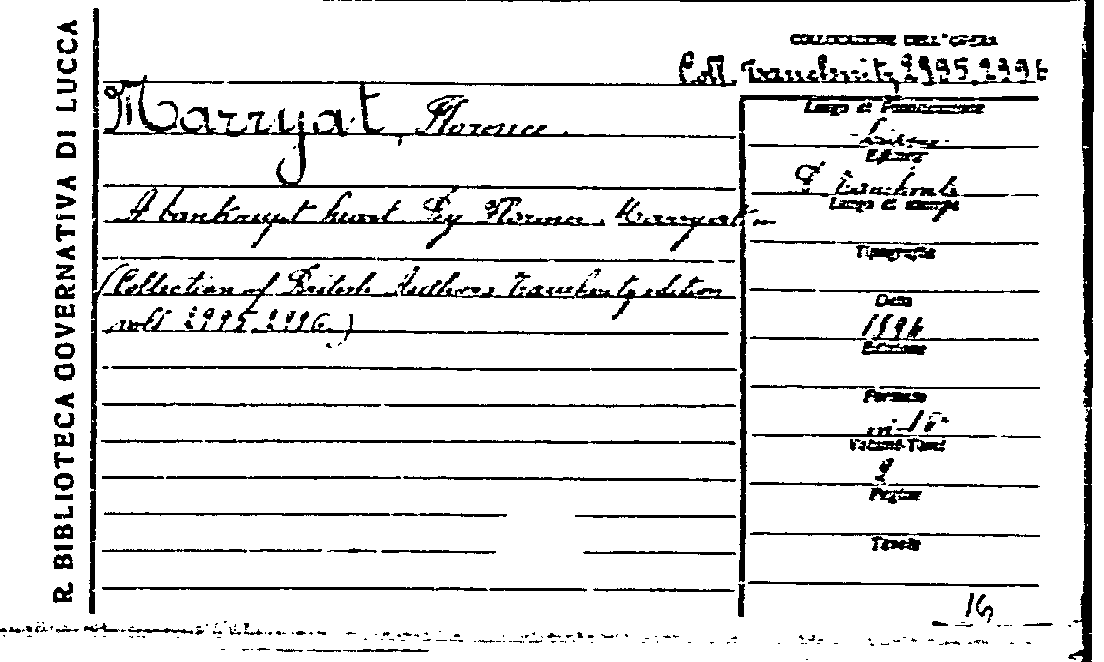 R. BIBLIOTECA GOVERNATIVA DI LUCCA
COLLOCAZIONE DELL'OPERA
Coll. Tauchnitz, 2995.2996
Marryat, Florence.
A bankrupt heart by Florence Marryat
(Collection of British Authors Tauchnitz edition
voll 2995.2996.)
Luogo di Pubblicazione
Editore
B Tauchnitz
Luogo di stampa
Tipografia
Data
1894
Edizione
Formato
in-16°
Volumi-Tomi
2
Pagine
Tavole